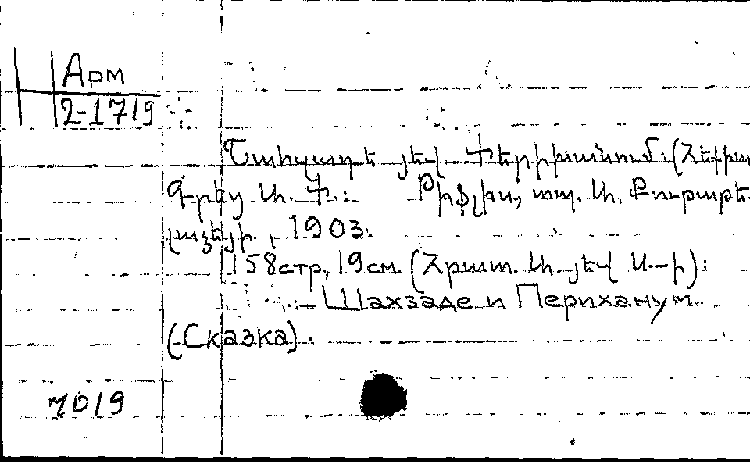 Арм
2-1719
Շահզադե յեվ Փերիխանում. (Հեքիա
Գրեց Ա. Փ.: Թիֆլիս, տպ. Ա. Քութաթե-
լաձեյի, 1903.
158 стр, 19 см. (Հրատ. Ա. յեվ Ա-ի):
- Шахзаде и Периханум.
(Сказка).
7019